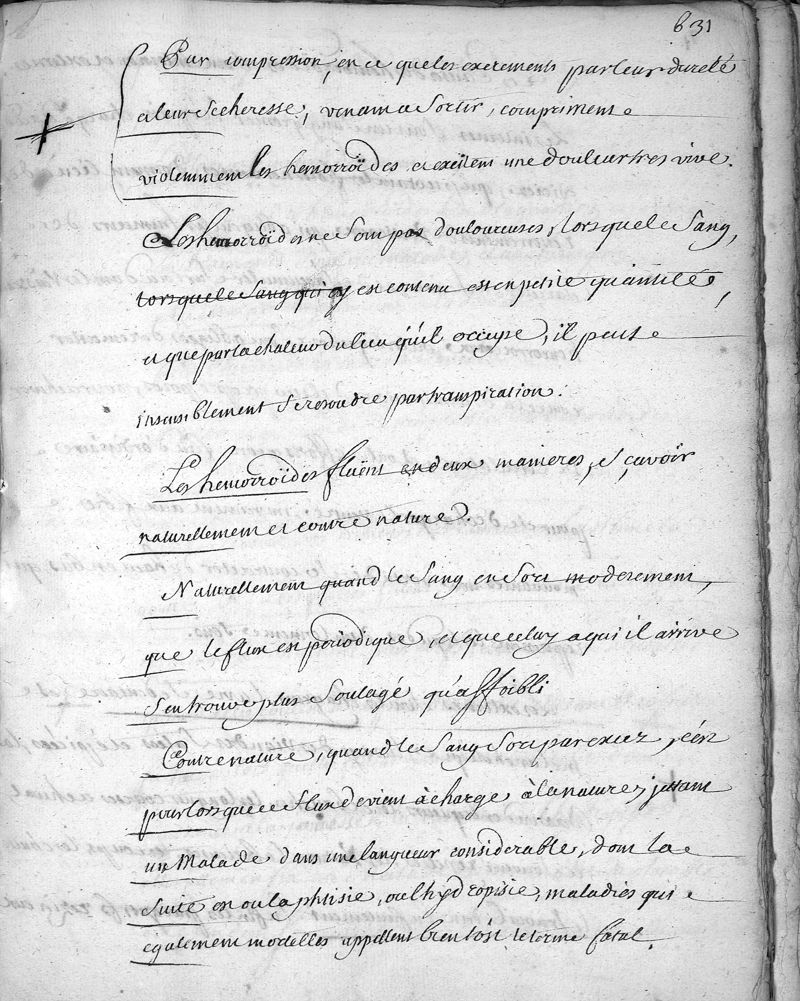 631
Par compression, en ce que les excrements par leur dureté
a leur Secheresse, venant a Sortir, compriment
violemment les hemorroïdes et excitent une douleur tres vive.
Les hemorroïdes ne Sont pas douloureuses, lorsque le Sang,
lorsque le Sang qui y est contenu est en petite quantité,
et que par la chaleur du lieu qu'il occupe, il peut
insensiblement Se resoudre par transpiration.
Les hemorroïdes fluënt en deux manieres, Sçavoir
naturellement et contre nature.
Naturellement quand le Sang en Sort moderement,
que le flux est periodique, et que celuy a qui il arrive
S'en trouve plus Soulagé qu'affoibli
Contre nature, quand le Sang Sort par excez, c'est
pour lors que ce flux devient à charge à la nature, jettant
un Malade dans une langueur considerable, dont la
Suite est ou la phtisie, ou l'hydropisie, maladies qui
egalement mortelles appellent bientost le terme fatal.